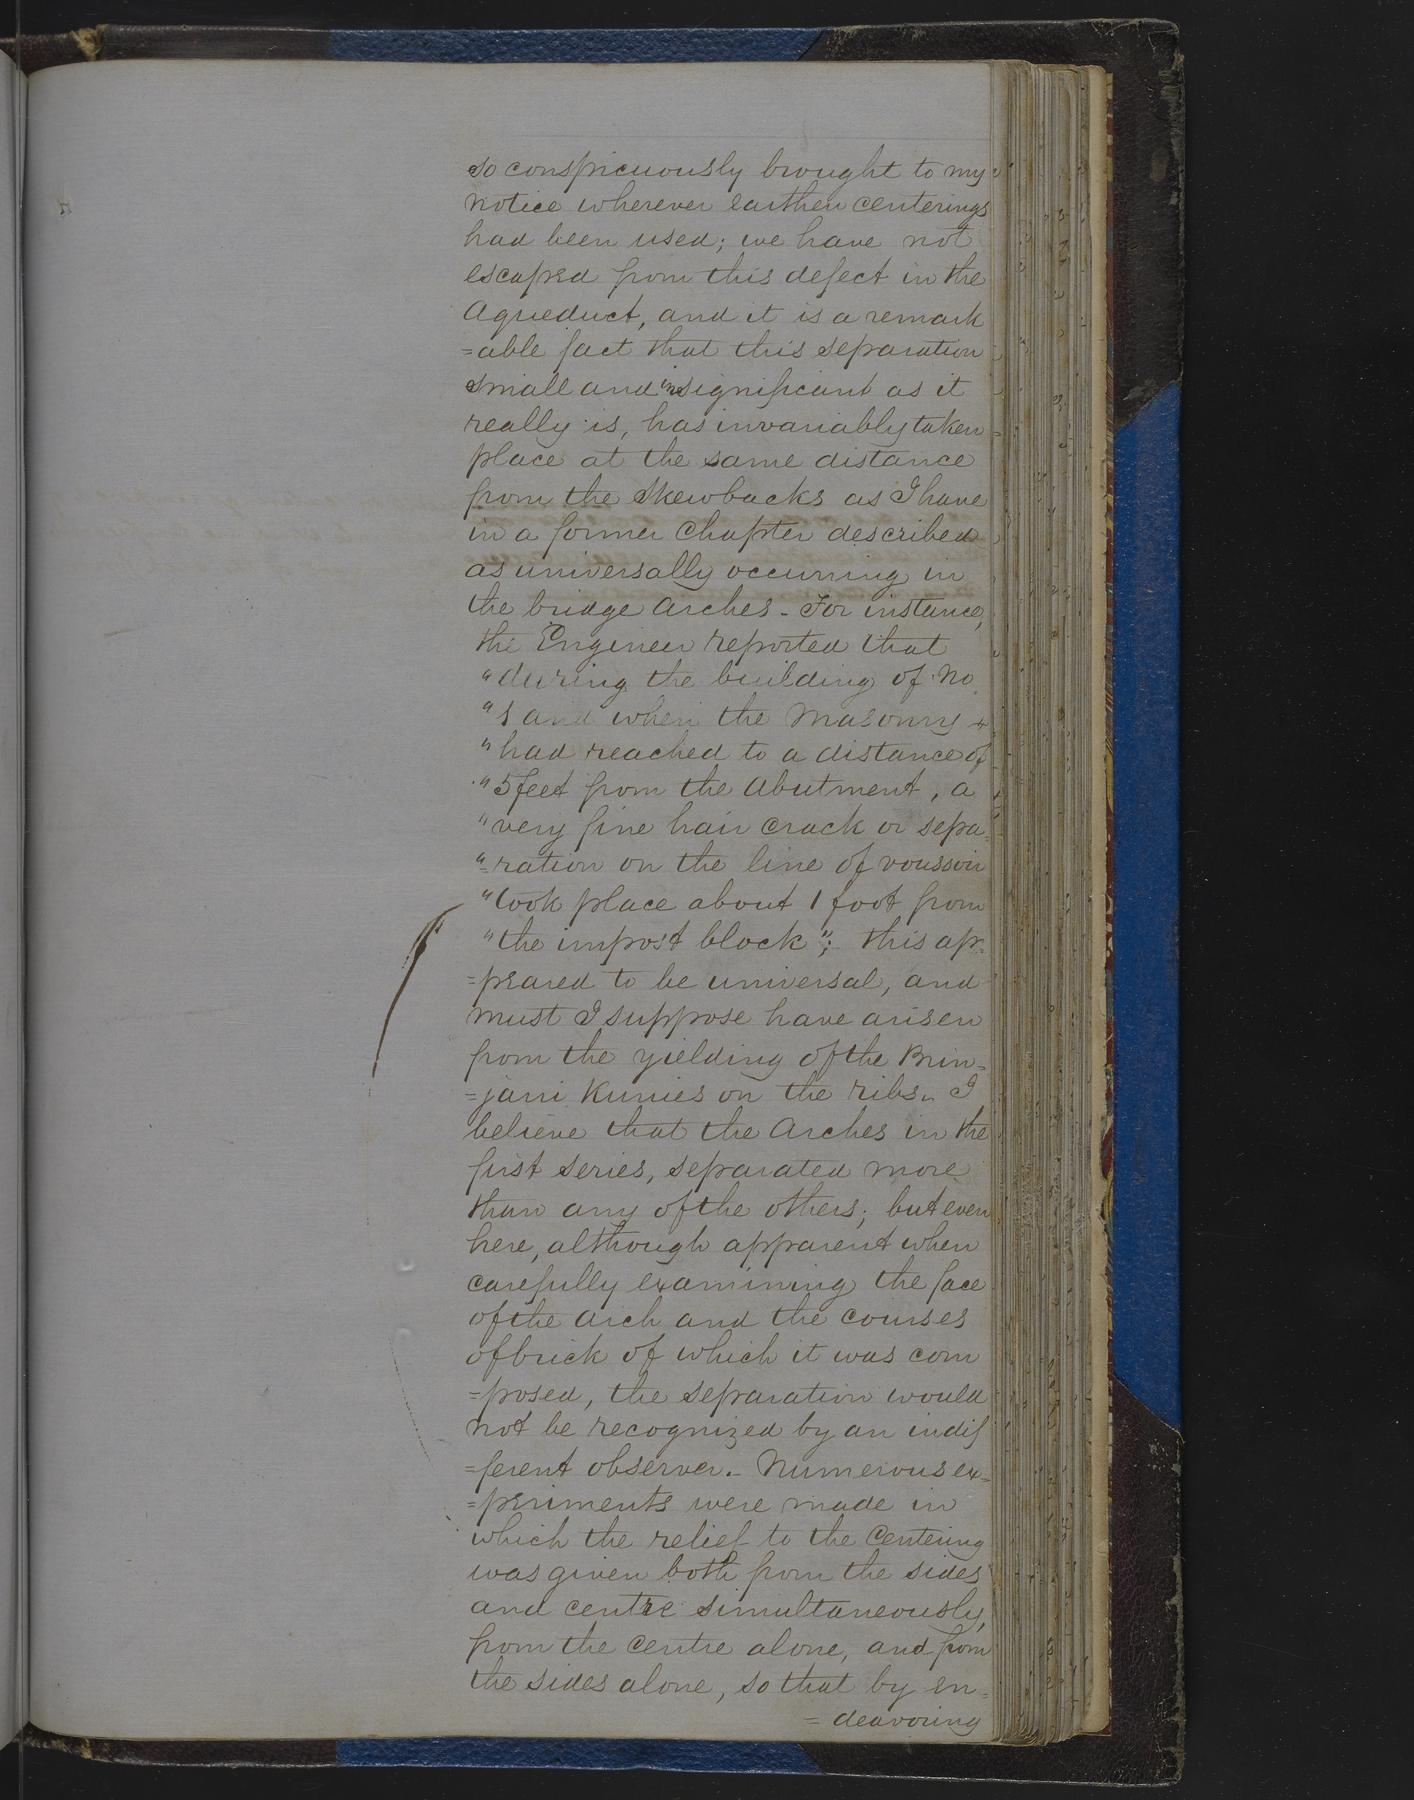 so conspicuously brought to my
notice wherever earthen centerings
had been used; we have not
escaped from this defect in the
Aqueduct, and it is a remark
=able fact that this separation
small and insignificant as it
really is, has invariably taken
place at the same distance
from the Skewbacks as I have
in a former Chapter described
as universally occurring in
the bridge Arches - For instance,
the Engineer reported that
"during the building of No
"1 and when the Masonry
"had reached to a distance of
"5 feet from the Abutment, a
"very fine hair crack or sepa=
"=ration on the line of voussoir
"took place about 1 foot from
"the impost block"; this ap=
=peared to be universal, and
must I suppose have arisen
from the yielding of the Brin=
=jari Kurries on the ribs. I
believe that the Arches in the
first series, separated more
than any of the others; but even
here, although apparent when
carefully examining the face
of the Arch and the courses
of brick of which it was com
=posed, the separation would
not be recognized by an indif
=ferent observer. - Numerous ex=
=periments were made in
which the relief to the Centering
was given both from the sides
and centre simultaneously,
from the Centre alone, and from
the sides alone, so that by en=
=deavoring